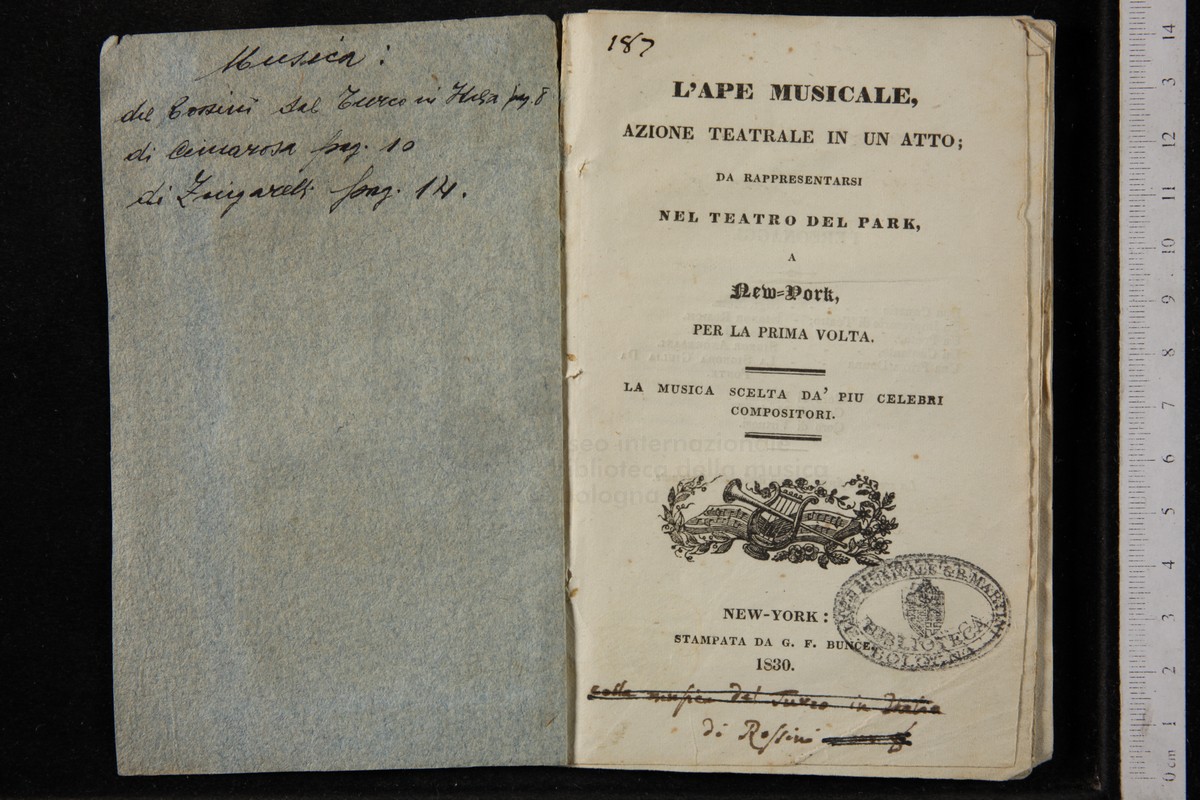 Musica:
del Rossini dal Turco in Italia pag. 8
di Cimarosa pag. 10
di Zingarelli pag. 14.
187
L'APE MUSICALE,
AZIONE TEATRALE IN UN ATTO;
DA RAPPRESENTARSI
NEL TEATRO DEL PARK,
A
New-York,
PER LA PRIMA VOLTA.
LA MUSICA SCELTA DA' PIU CELEBRI
COMPOSITORI.
museo internazionale
biblioteca della musica
bologna
NEW-YORK:
STAMPATA DA G. F. BUNCE.
1830.
LICEO MUSICALE G. B. MARTINI
BIBLIOTECA
BOLOGNA
colla musica del Turco in Italia
di Rossini
14
13
12
11
10
9
8
7
6
5
4
3
2
1
0 cm